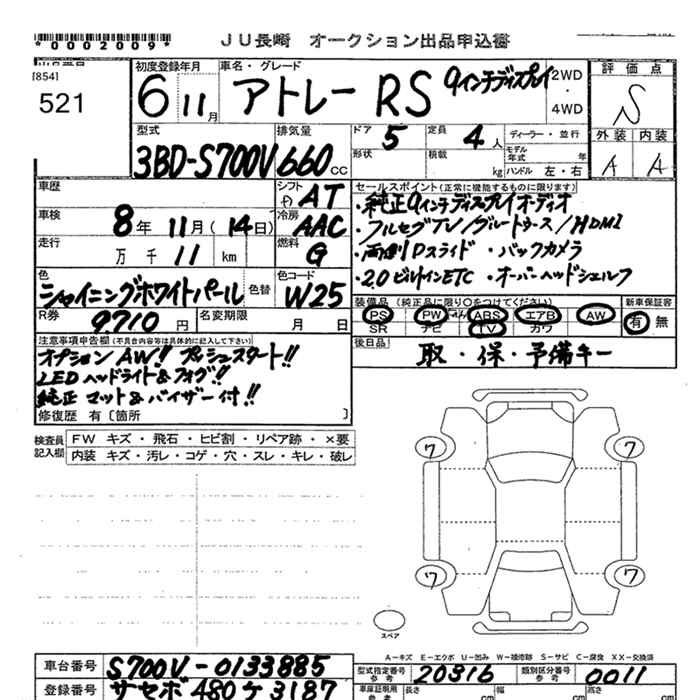 *0002009*
JU長崎 オークション出品申込書
[854]
521
初度登録年月
6 11月
車名・グレード
アトレー RS 9インチディスプレイ
2WD
4WD
評価点
S
外装 内装
A A
型式
3BD-S700V
排気量
660 CC
ドア 5
定員 4人
形状
積載 kg
ディーラー・並行
モデル年式 年
ハンドル 左・右
車歴
シフト AT
車検
8年 11月(14日)
冷房 AAC
走行
万 千 11 km
燃料 G
色
シャイニングホワイトパール
色替
色コード
W25
R券 9710円
名変期限 月 日
セールスポイント(正常に機能するものに限ります)
・純正9インチディスプレイオーディオ
・フルセグTV/ブルートゥース/HDMI
・両側Pスライド ・バックカメラ
・2.0ビルトインETC ・オーバーヘッドシェルフ
装備品 (純正品に限り○をつけてください)
新車保証書
PS PW ABS エアB AW
SR ナビ TV カワ
有 無
後日品
取・保・予備キー
注意事項申告欄(不具合内容等は具体的に記入して下さい)
オプションAW!! プッシュスタート!!
LEDヘッドライト&フォグ!!
純正マット&バイザー付!!
修復歴 有〔箇所 〕
検査員記入欄
FW キズ・飛石・ヒビ割・リペア跡・×要
内装 キズ・汚レ・コゲ・穴・スレ・キレ・破レ
ワ ワ
ワ ワ
スペア
A-キズ E-エクボ U-凹み W-補修跡 S-サビ C-腐食 XX-交換済
車台番号 S700V-0133885
型式指定番号 参考 20316
類別区分番号 参考 0011
登録番号 サセボ 480 ケ 3187
車庫証明用 参考
長さ cm
幅 cm
高さ cm